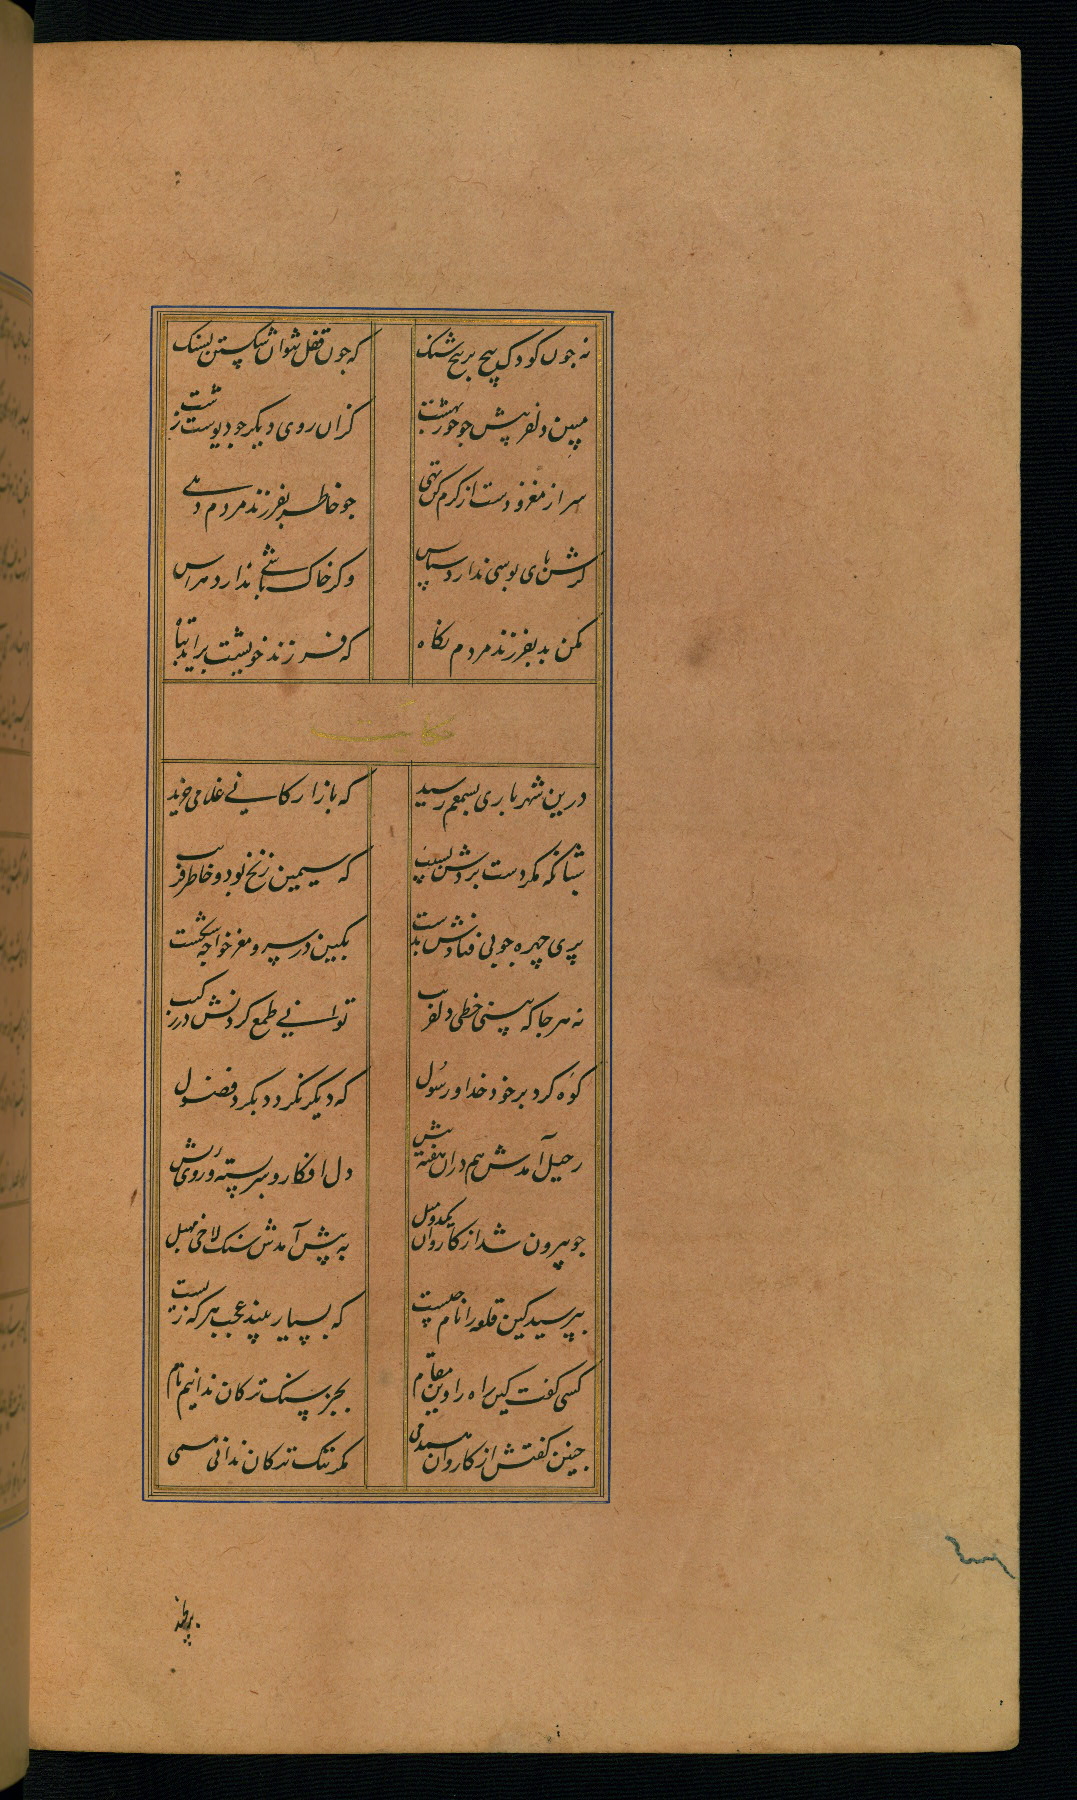 نه چون کودک پیچ بر پیچ شنگ که چون قفل نتوان شکستن بسنک
مبین دلفریبش چو حور بهشت کزان روی دیکر چو دیوست زشت
سر از مغز و دست از کرم کن تهی چو خاطر بفرزند مردم دهی
کرش پای بوسی ندارد سپاس وکر خاک باشی نداند هراس
مکن بد بفرزند مردم نکاه که فرزند خویشت براید تباه
حکایت
درین شهر باری بسمعم رسید که بازارکانی غلامی خرید
شبانکه مکر دست بردش بسیب که سیمین زنخ بود و خاطر فریب
پری چهره چوبی فتادش بدست بکین در سر و مغز خواجه شکست
نه هر جا که بینی خطی دلفریب توانی طمع کردنش در رکیب
کوه کرد بر خود خدا و رسول که دیکر نکردد بکرد فضول
رحیل آمدش هم دران هفته پیش دل افکار و سر بسته و روی ریش
چو بیرون شد از کاروان یکدو میل به پیش آمدش سنک لاخی مهیل
بپرسید کین قلعه را نام چیست که بسیار بیند عجب هر که زیست
کسی کفت کین راه را وین مقام بجز سنک ترکان ندانیم نام
چنین کفتش از کاروان همدمی مکر تنک ترکان ندانی همی